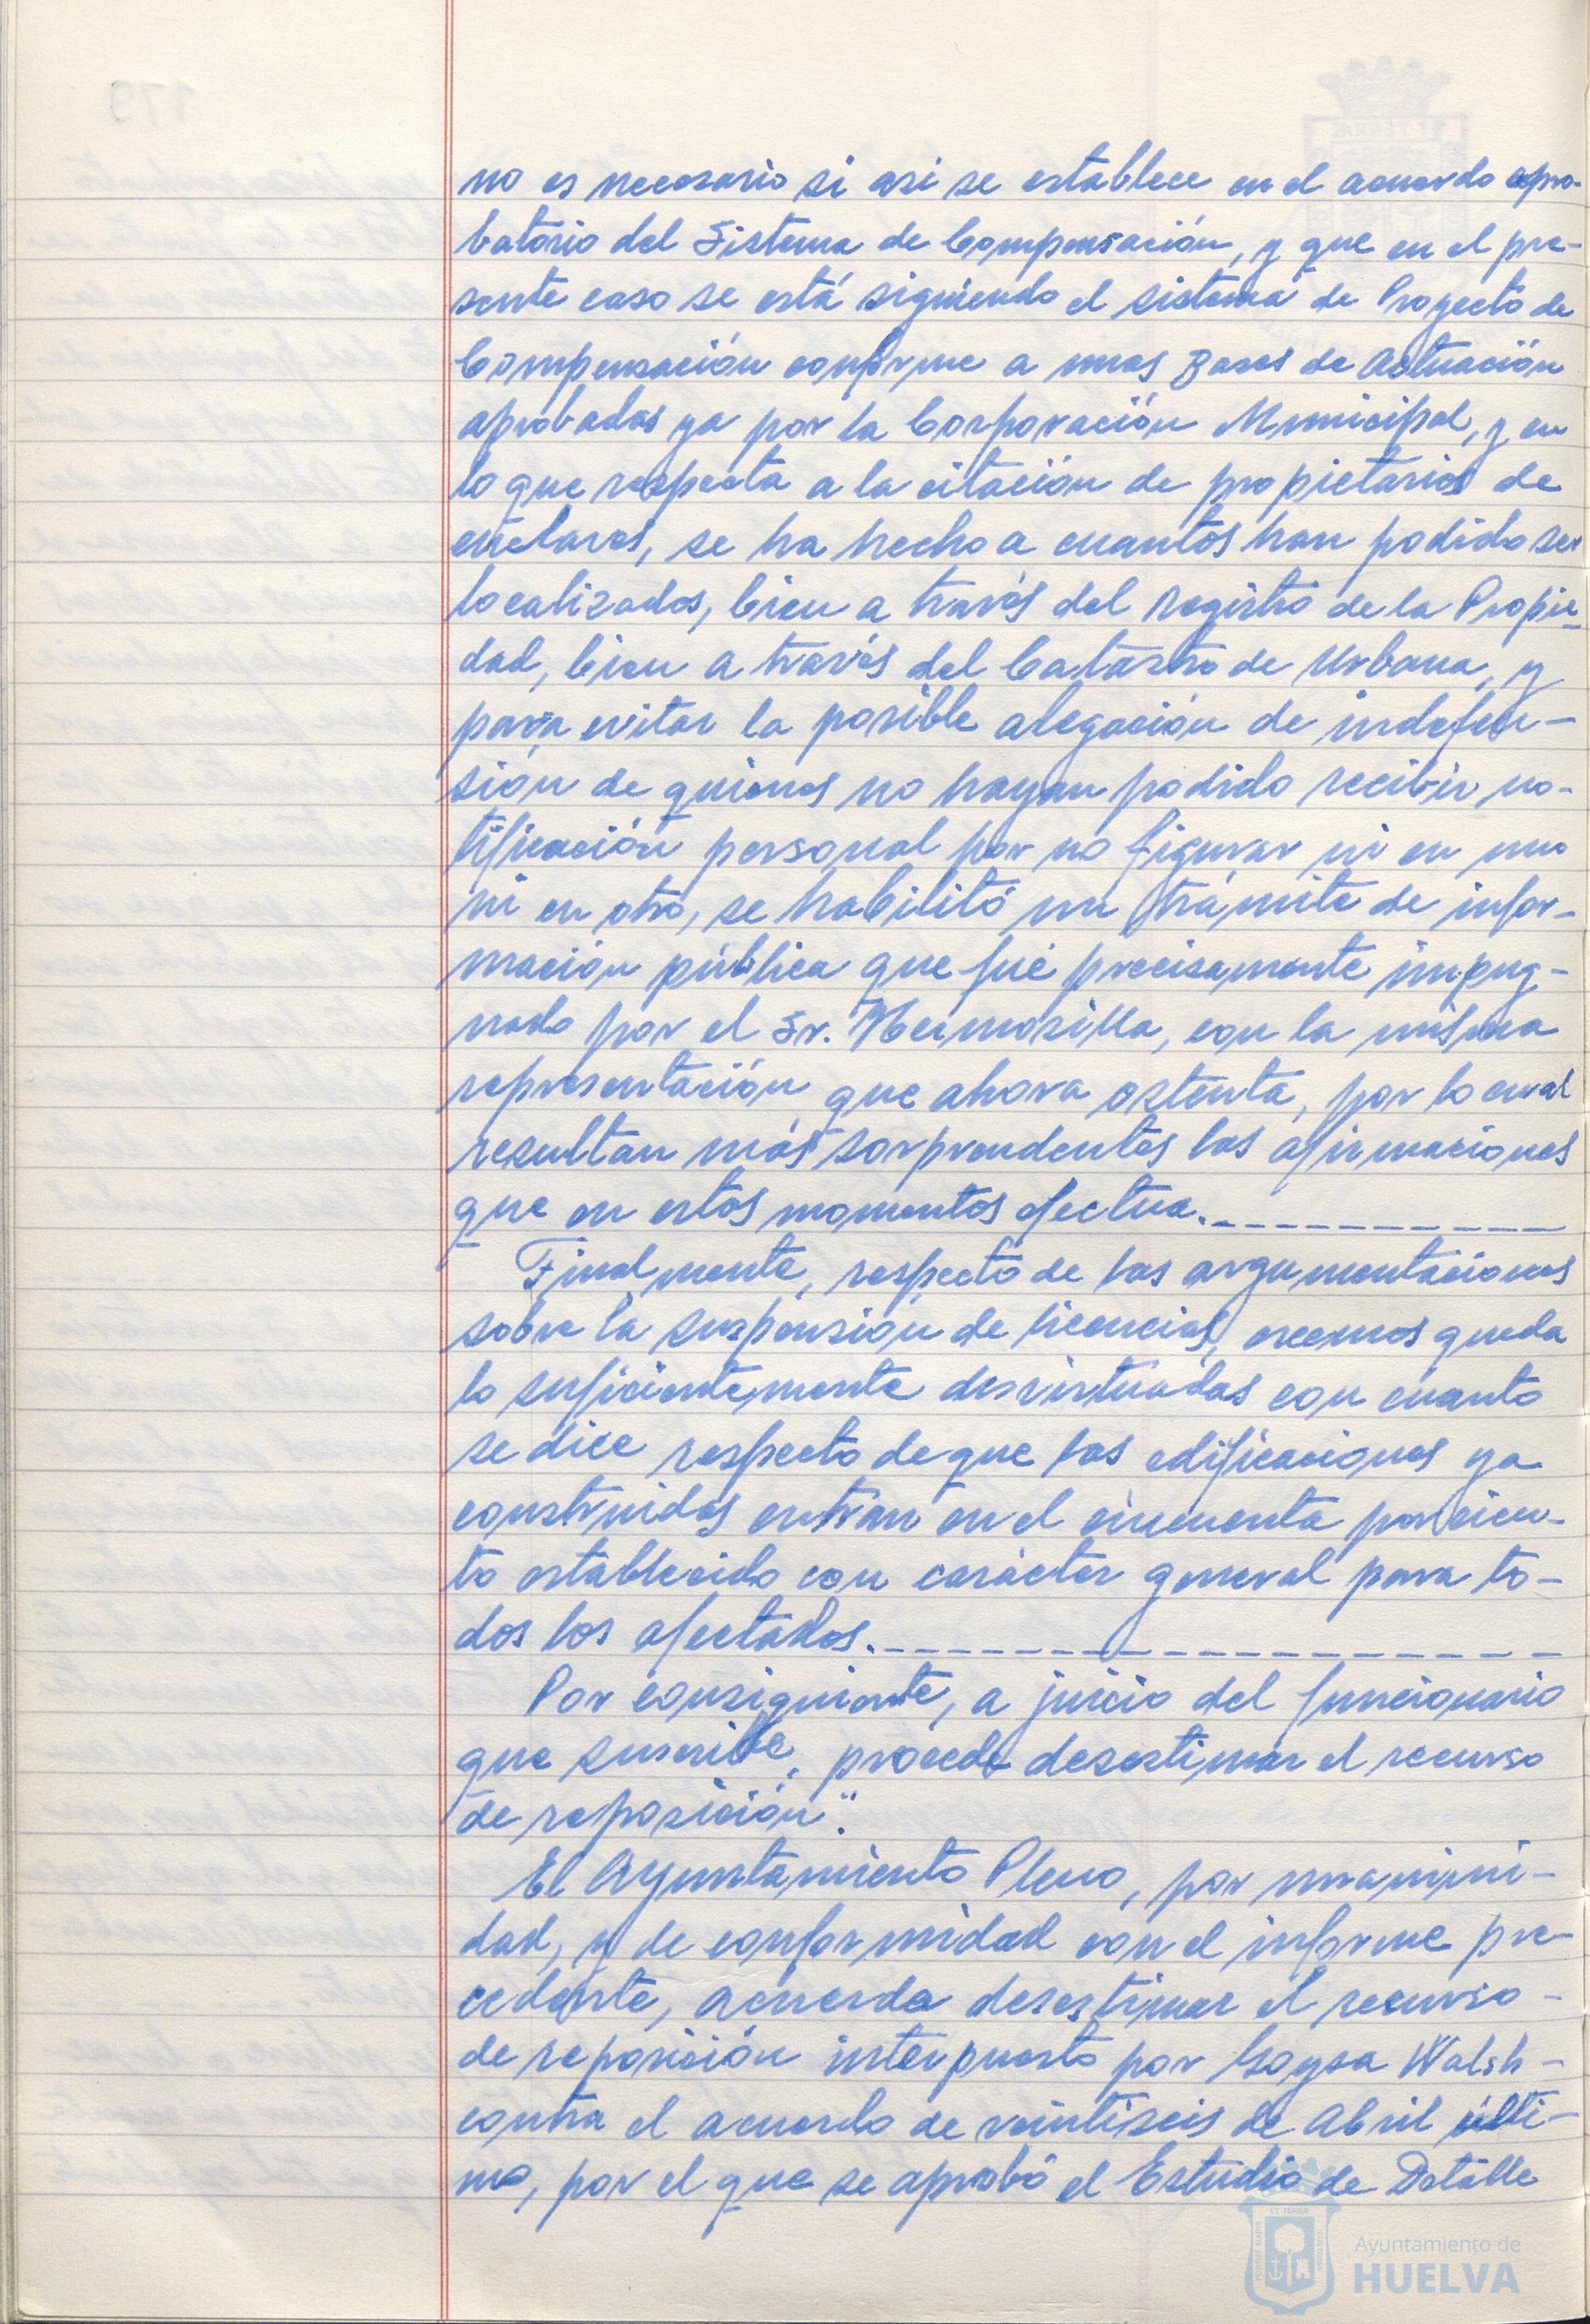 no es necesario si asi se establece en el acuerdo apro-
batorio del Sistema de Compensación, y que en el pre-
sente caso se está siguiendo el sistema de Proyecto de
Compensación conforme a unas Bases de Actuación
aprobadas ya por la Corporación Municipal, y en
lo que respecta a la citación de propietarios de
enclaves, se ha hecho a cuantos han podido ser
localizados, bien a través del Registro de la Propie-
dad, bien a través del Catastro de Urbana, y
para evitar la posible alegación de indefen-
sión de quienes no hayan podido recibir no-
tificación personal por no figurar ni en uno
ni en otro, se habilitó un trámite de infor-
mación pública que fué precisamente impug-
nado por el Sr. Hermosilla, con la misma
representación que ahora ostenta, por lo cual
resultan más sorprendentes las afirmaciones
que en estos momentos efectua.
Finalmente, respecto de las argumentaciones
sobre la suspensión de licencias, creemos queda
lo suficientemente desvirtuadas con cuanto
se dice respecto de que las edificaciones ya
construidas entran en el cincuenta por cien-
to establecido con carácter general para to-
dos los afectados.
Por consiguiente, a juicio del funcionario
que suscribe, procede desestimar el recurso
de reposición".
El Ayuntamiento Pleno, por unanimi-
dad, y de conformidad con el informe pre-
cedente, acuerda desestimar el recurso
de reposición interpuesto por Goysa Walsh
contra el acuerdo de veintiseis de Abril últi-
mo, por el que se aprobó el Estudio de Detalle
Ayuntamiento de
HUELVA